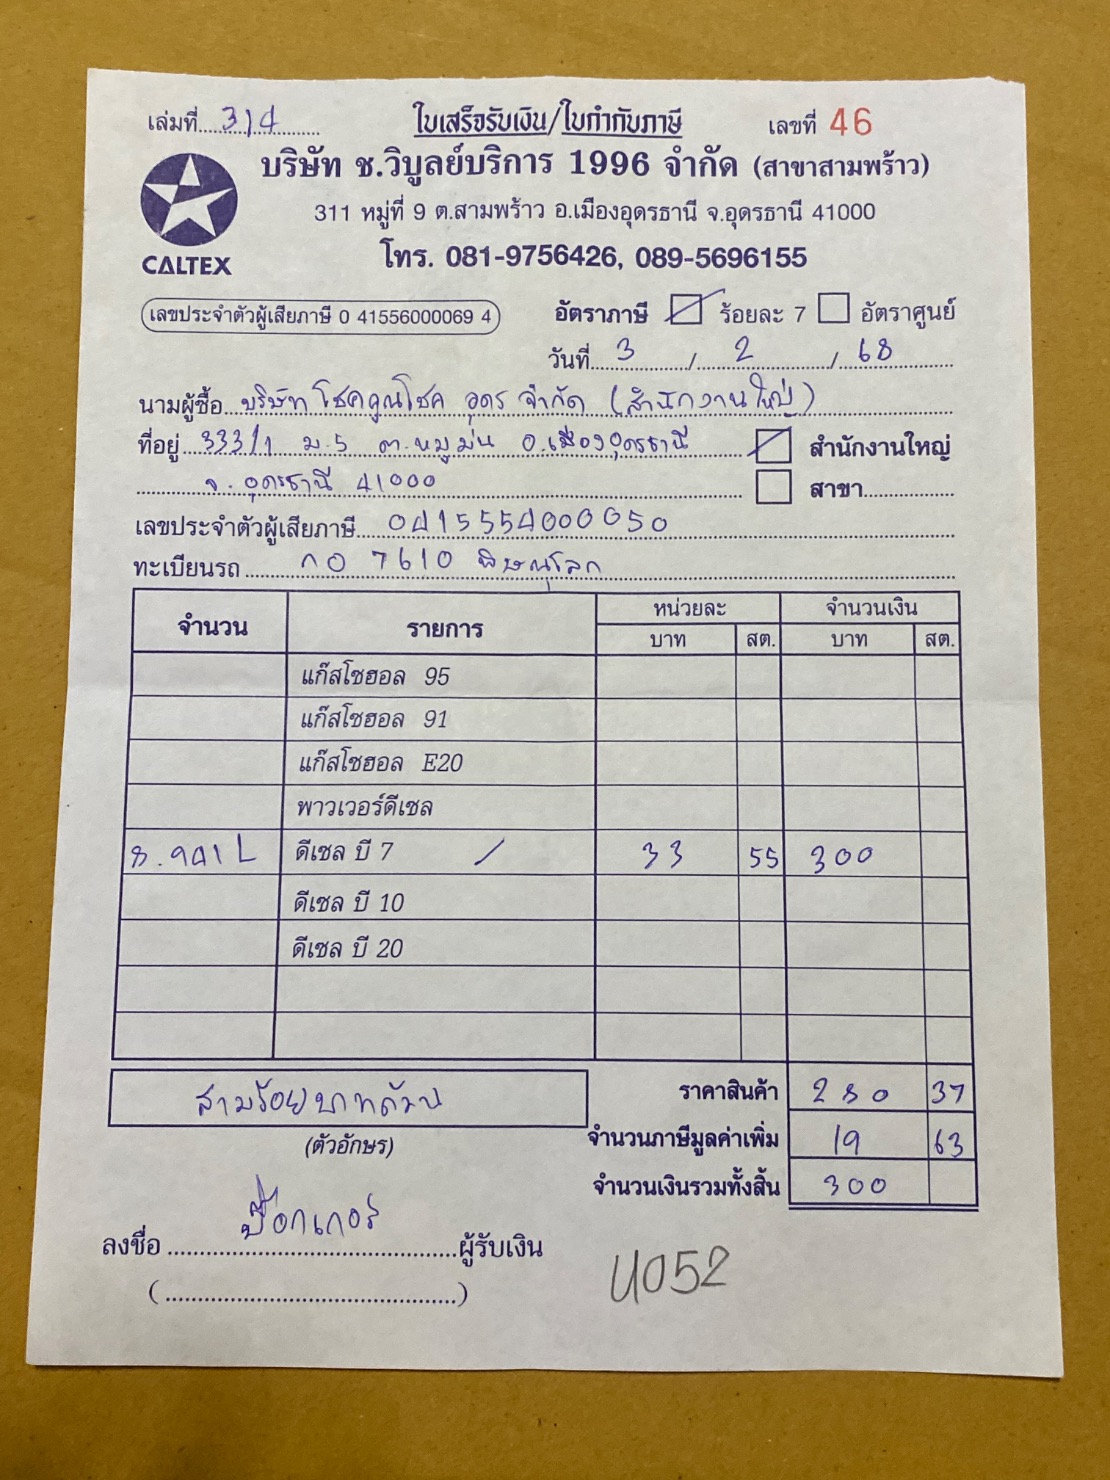 เล่มที่ 314 ใบเสร็จรับเงิน/ใบกำกับภาษี เลขที่ 46
บริษัท ช.วิบูลย์บริการ 1996 จำกัด (สาขาสามพร้าว)
311 หมู่ที่ 9 ต.สามพร้าว อ.เมืองอุดรธานี จ.อุดรธานี 41000
CALTEX โทร. 081-9756426, 089-5696155
เลขประจำตัวผู้เสียภาษี 0 41556000069 4 อัตราภาษี ร้อยละ 7 อัตราศูนย์
วันที่ 3 / 2 / 68
นามผู้ซื้อ บริษัท โชคคูณโชค อุดร จำกัด (สำนักงานใหญ่)
ที่อยู่ 333/1 ม.5 ต.หมูม่น อ.เมืองอุดรธานี สำนักงานใหญ่
จ.อุดรธานี 41000 สาขา
เลขประจำตัวผู้เสียภาษี 0415554000050
ทะเบียนรถ กอ 7610 พิษณุโลก
จำนวน รายการ หน่วยละ จำนวนเงิน
บาท สต. บาท สต.
แก๊สโซฮอล 95
แก๊สโซฮอล 91
แก๊สโซฮอล E20
พาวเวอร์ดีเซล
8.941 L ดีเซล บี 7 / 33 55 300
ดีเซล บี 10
ดีเซล บี 20
สามร้อยบาทถ้วน ราคาสินค้า 280 37
(ตัวอักษร) จำนวนภาษีมูลค่าเพิ่ม 19 63
จำนวนเงินรวมทั้งสิ้น 300
ลงชื่อ ป๊อกเกอร์ ผู้รับเงิน
(                    )
U052